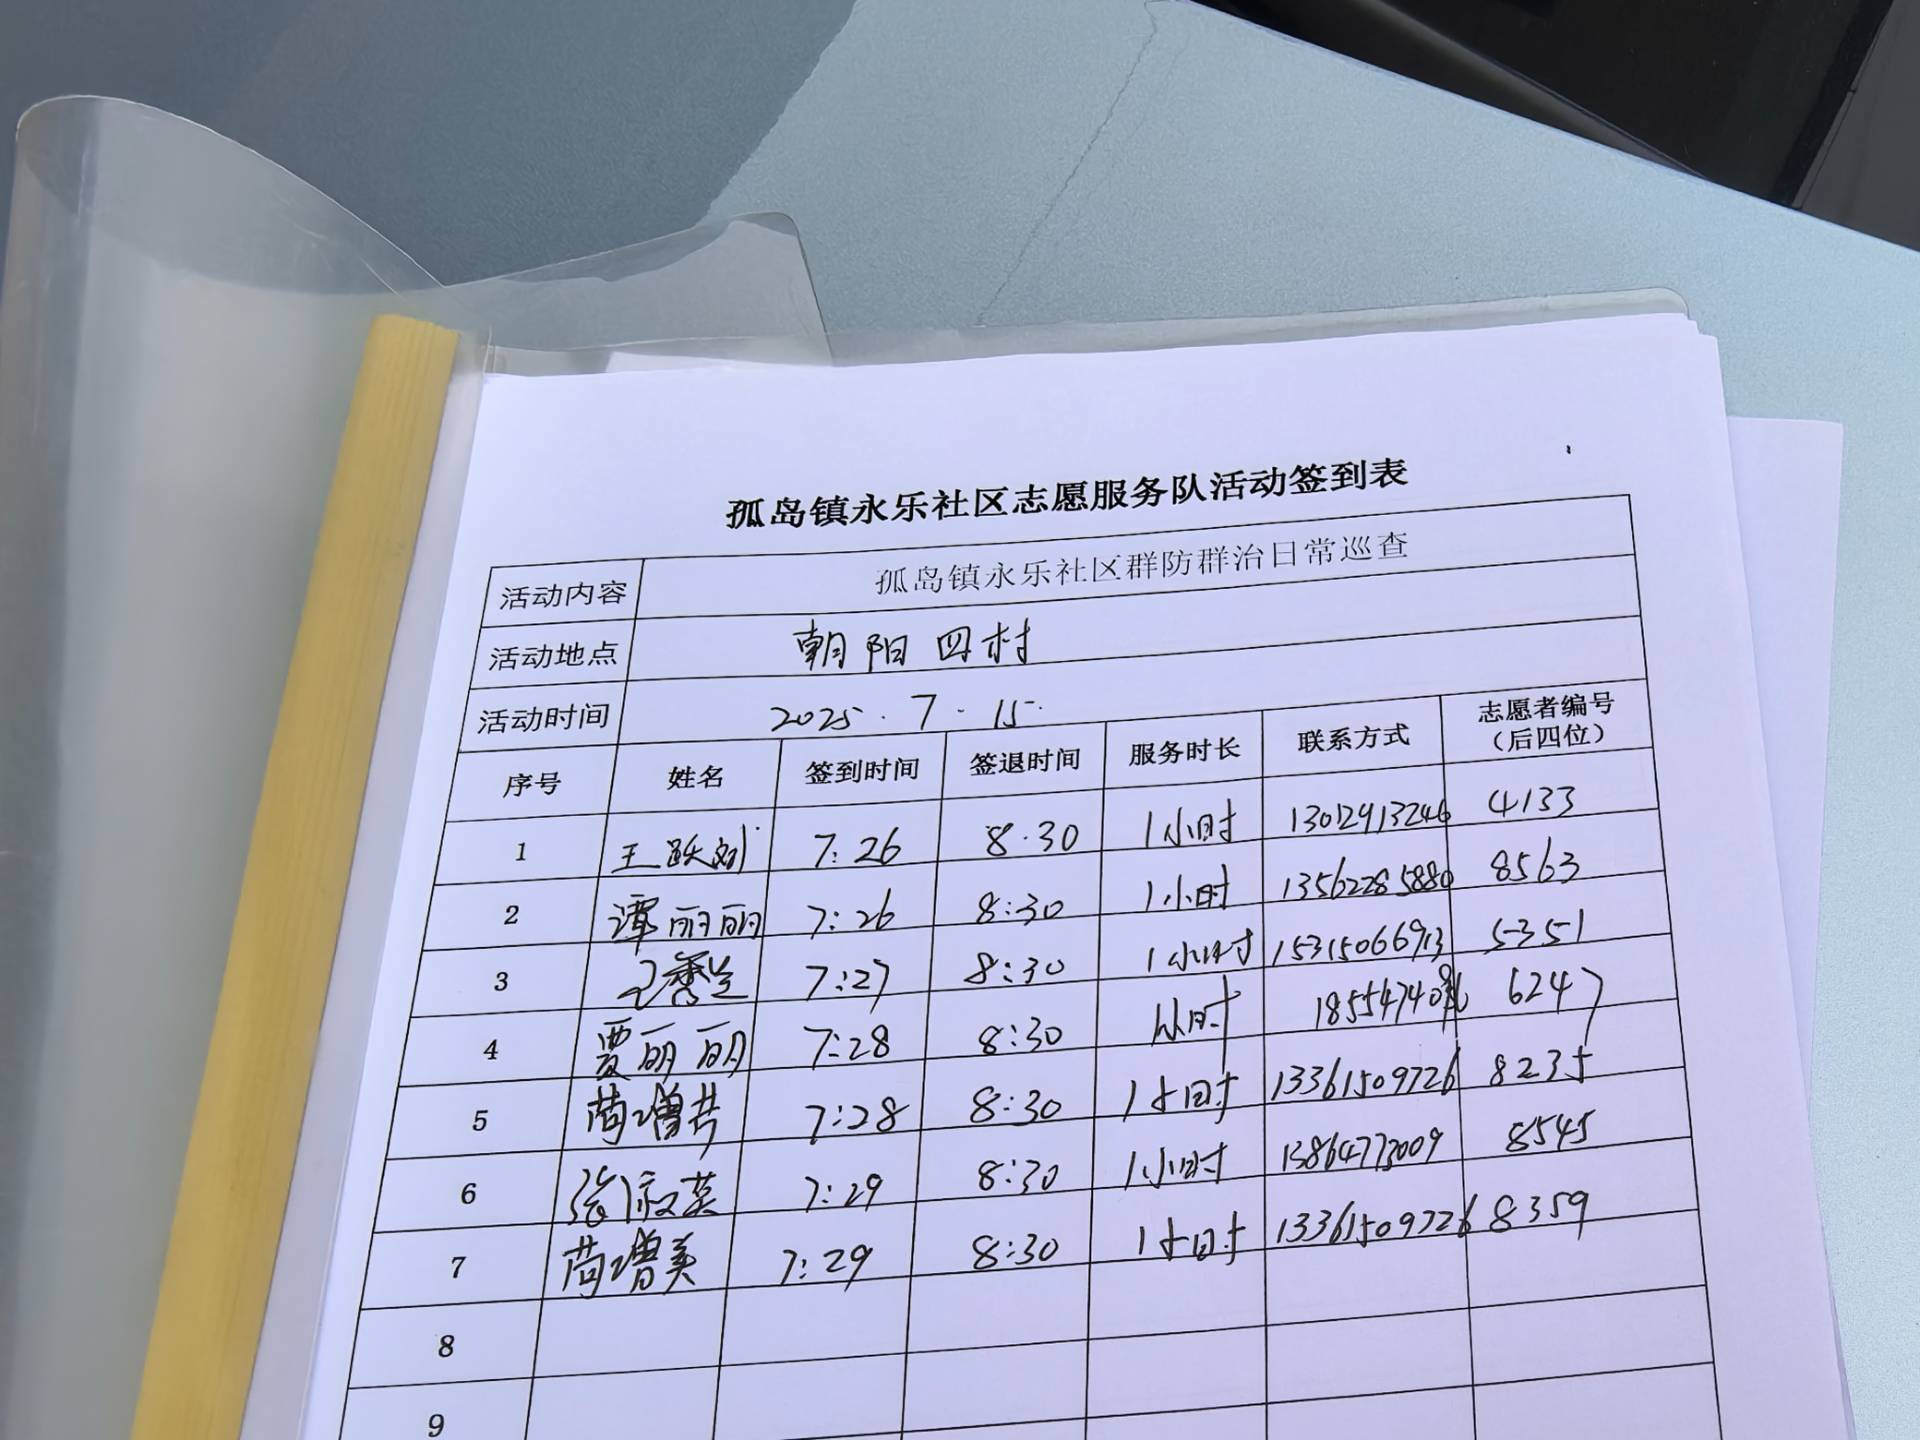 孤岛镇永乐社区志愿服务队活动签到表
活动内容 孤岛镇永乐社区群防群治日常巡查
活动地点 朝阳四村
活动时间 2025.7.15.
序号 姓名 签到时间 签退时间 服务时长 联系方式 志愿者编号
（后四位）
1 王跃 7:26 8.30 1小时 13012913246 4133
2 谭丽丽 7:26 8:30 1小时 13562285880 8563
3 7:27 8:30 1小时 15315066913 5351
4 贾丽丽 7:28 8:30 1小时 6247
5 苘增芸 7:28 8:30 1小时 13361509726 8235
6 张淑英 7:29 8:30 1小时 13864773009 8545
7 苘增美 7:29 8:30 1小时 13361509726 8359
8
9